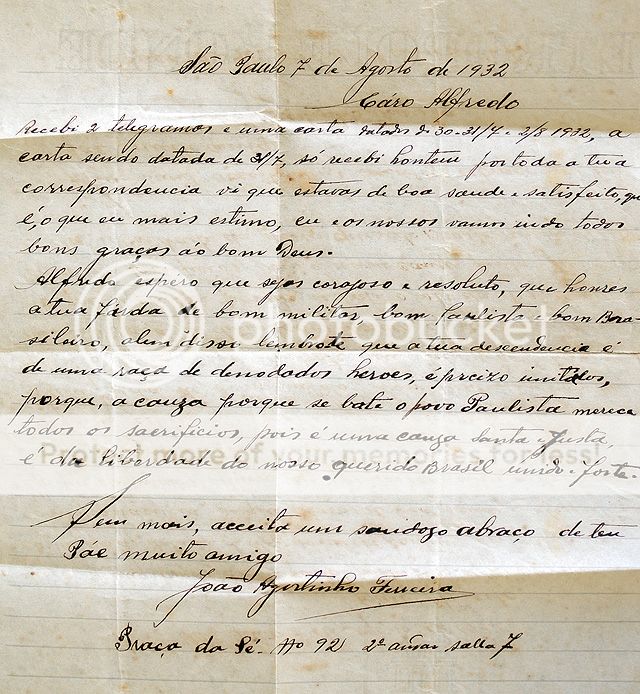 São Paulo 7 de Agosto de 1932
Cáro Alfredo
Recebi 2 telegramos e uma carta datados de 30-31/7 e 2/8 1932, a
carta sendo datada de 31/7, só recebi hontem por toda a tua
correspondencia vi que estavas de boa saude e satisfeito, que
é, o que eu mais estimo, eu e os nossos vamos indo todos
bons graças áo bom Deus.
Alfredo espéro que sejas corajoso e resoluto, que honres
a tua fárda de bom militar, bom Paulista e bom Bra-
sileiro, alem disso lembrate que a tua descendencia é
de uma raça de denodados heroes, é precizo imitalos,
porque, a cauza porque se bate o povo Paulista merece
todos os sacrificios, pois é uma cauza Santa e Justa,
é da liberdade do nosso querido Brasil unido e forte.
Sem mais, acceita um saudozo abraço de teu
Páe muito amigo
João Agostinho Ferreira
Praça da Sé. No 92 2º andar salla 7
photobucket
Protect more of your memories for less!